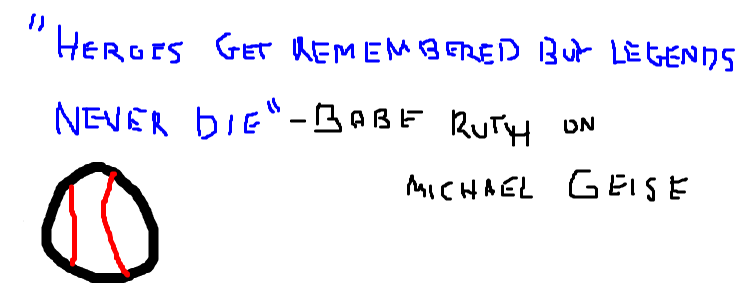 "HEROES GET REMEMBERED BUT LEGENDS
NEVER DIE" - BABE RUTH ON
MICHAEL GEISE